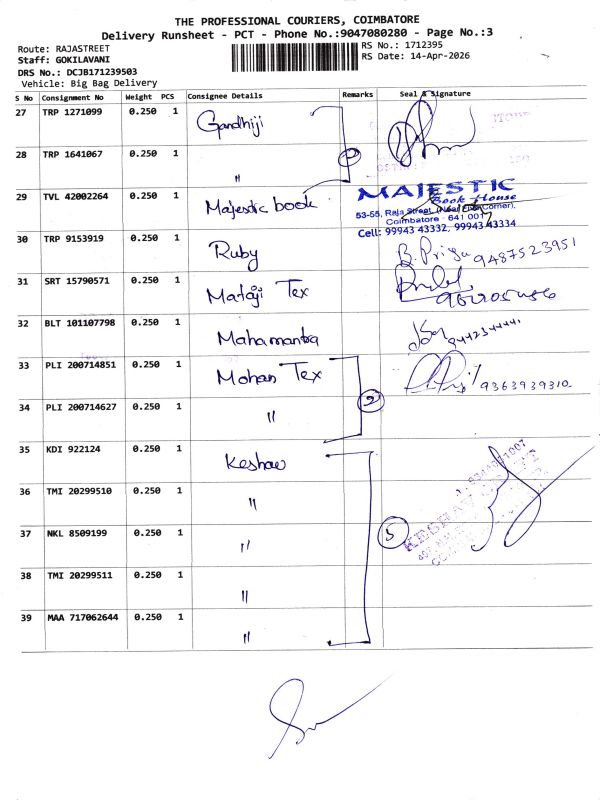 THE PROFESSIONAL COURIERS, COIMBATORE
Delivery Runsheet - PCT - Phone No.:9047080280 - Page No.:3
Route: RAJASTREET
RS No.: 1712395
Staff: GOKILAVANI
RS Date: 14-Apr-2026
DRS No.: DCJB171239503
Vehicle: Big Bag Delivery
S No Consignment No Weight PCS Consignee Details Remarks Seal & Signature
27 TRP 1271099 0.250 1 Gandhiji
28 TRP 1641067 0.250 1 "
29 TVL 42002264 0.250 1 Majestic book
MAJESTIC
Book House
53-55, Raja Street, Corner),
Coimbatore - 641 001
Cell: 99943 43332, 99943 43334
30 TRP 9153919 0.250 1 Ruby B. Priya 9487523951
31 SRT 15790571 0.250 1 Mataji Tex
32 BLT 101107798 0.250 1 Mahamantra
33 PLI 200714851 0.250 1 Mohan Tex 9363939310
34 PLI 200714627 0.250 1 " 2
35 KDI 922124 0.250 1 Keshav
36 TMI 20299510 0.250 1 "
37 NKL 8509199 0.250 1 " 5
38 TMI 20299511 0.250 1 "
39 MAA 717062644 0.250 1 "